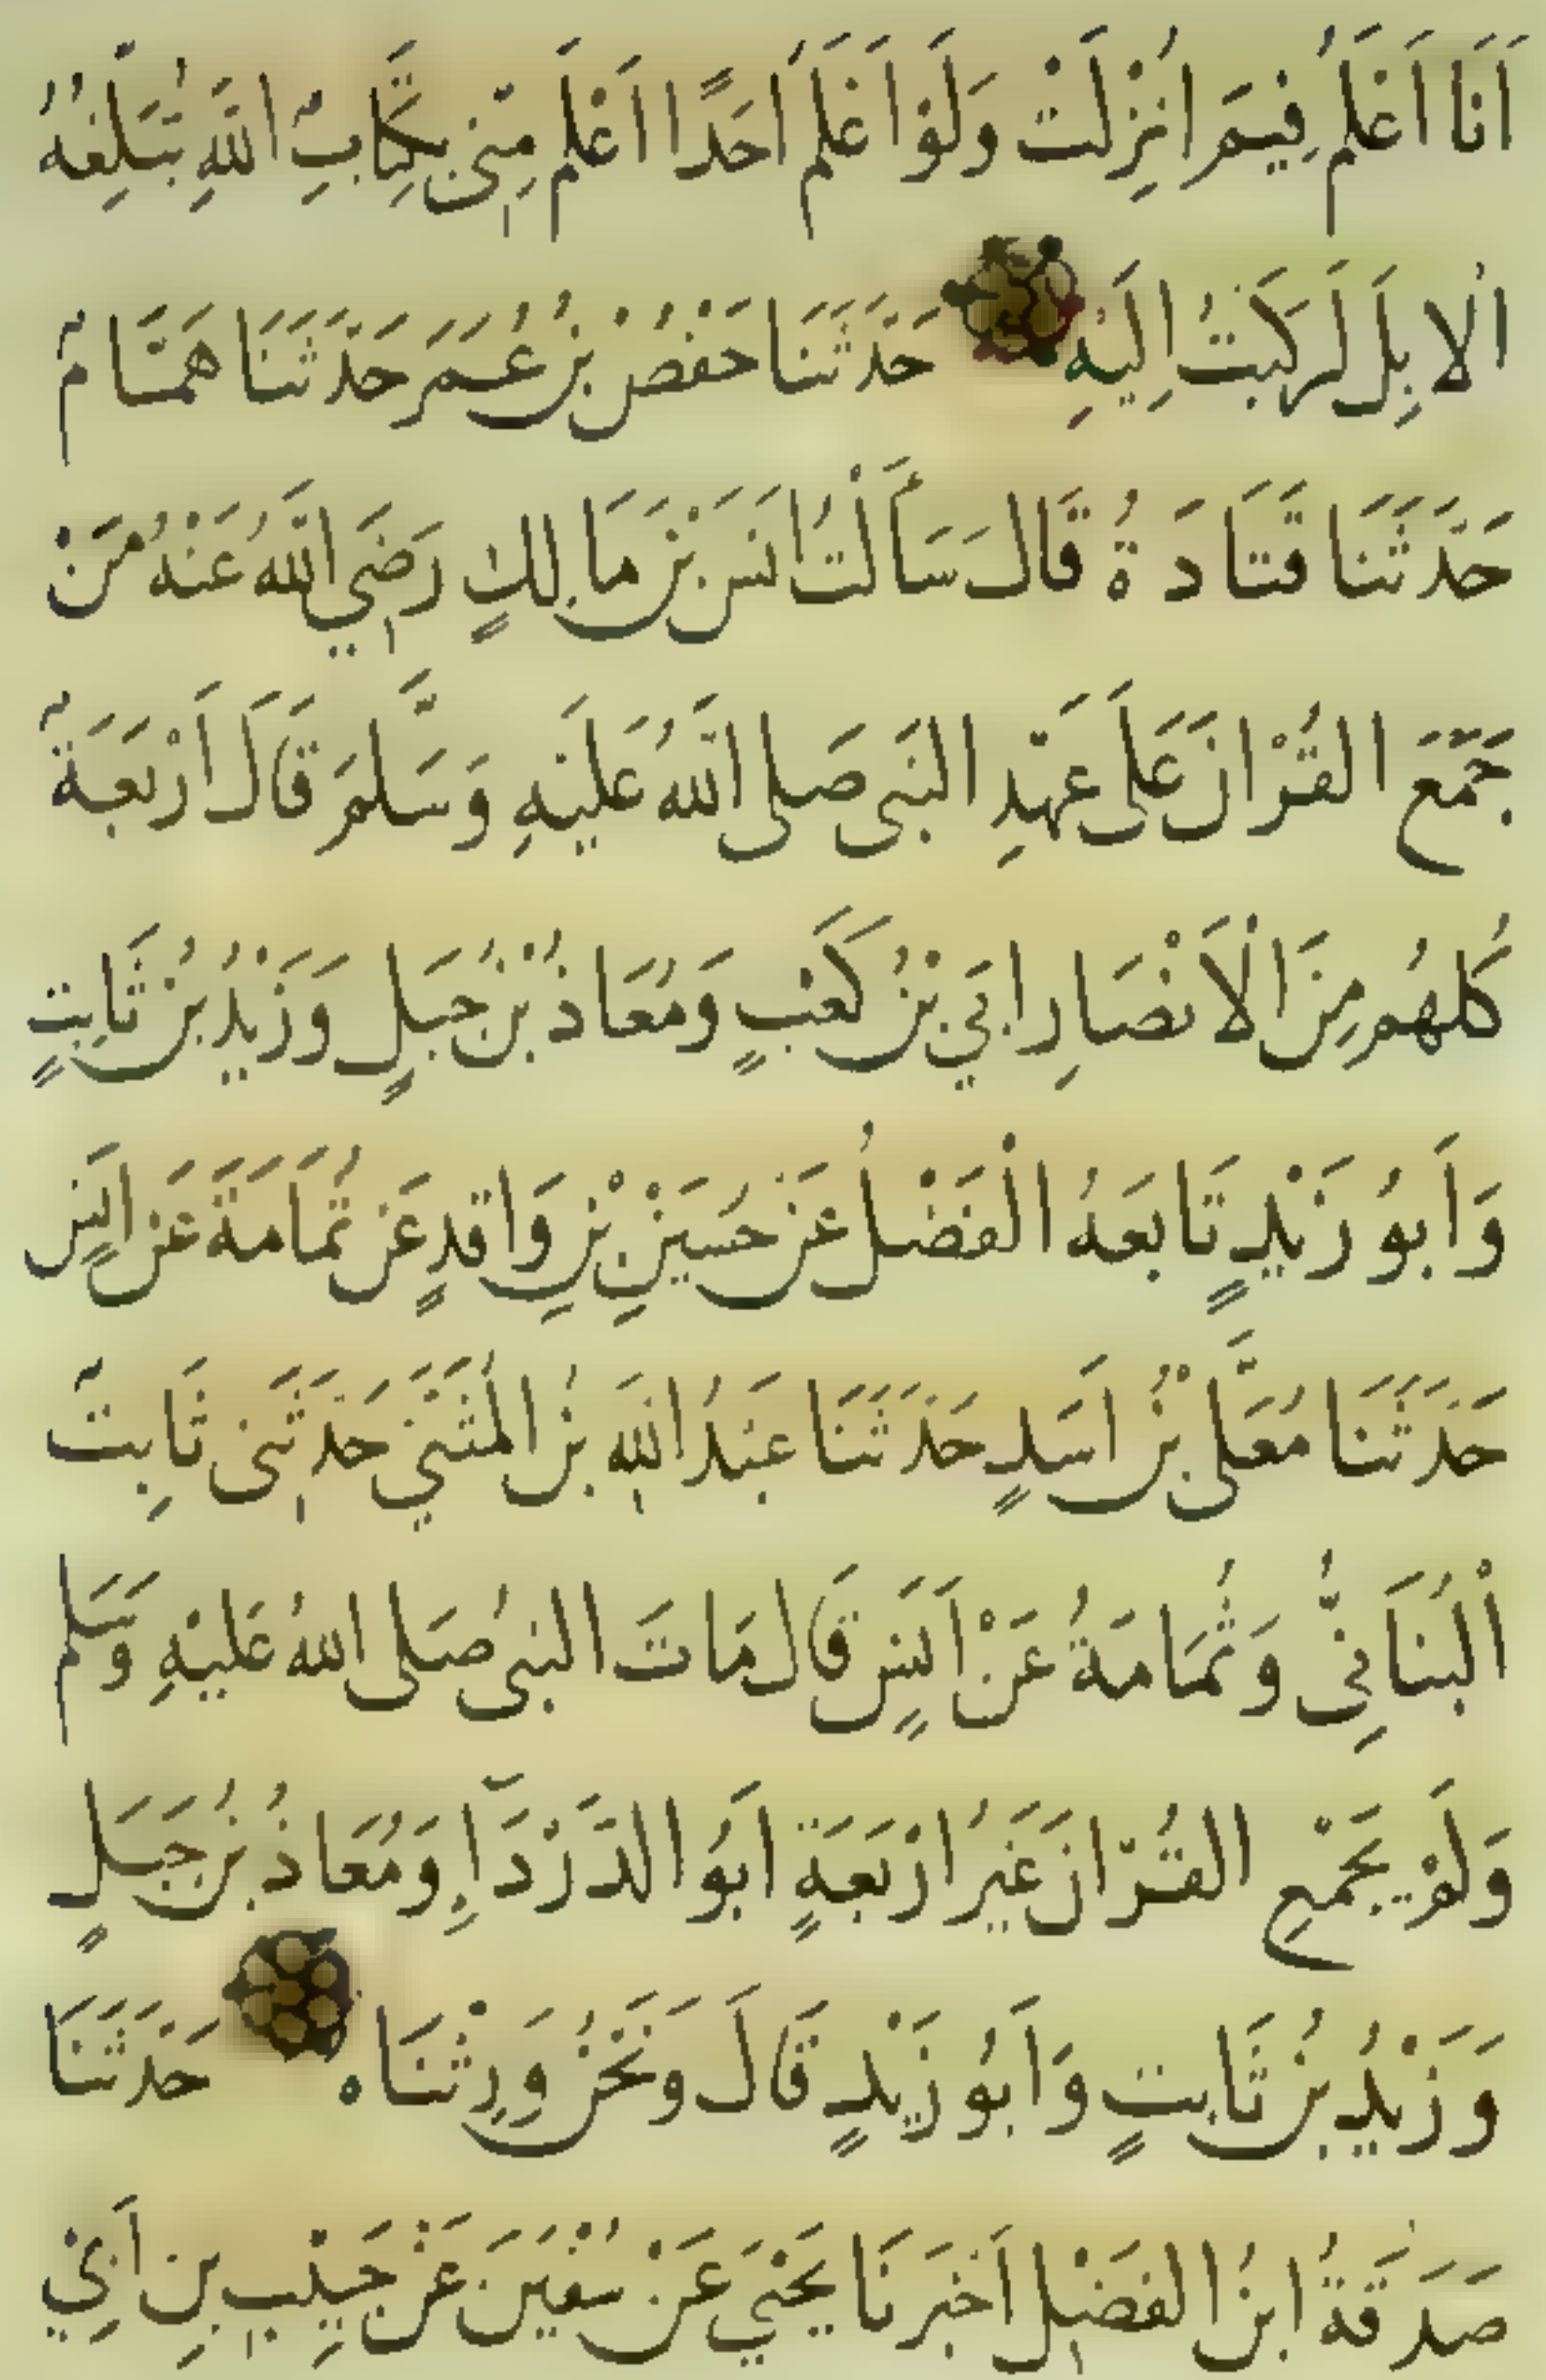 اَنَا اَعْلَمُ فِيمَ اُنْزِلَتْ وَلَوْ اَعْلَمُ اَحَدًا اَعْلَمَ مِنِّى بِكِتَابِ اللَّهِ تُبَلِّغُهُ
الُابِلُ لَرَكِبْتُ اِلَيْهِ حَدَّثَنَا حَفْصُ بْنُ عُمَرَ حَدَّثَنَا هَمَّامٌ
حَدَّثَنَا قَتَادَةُ قَالَ سَأَلْتُ انَسَ بْنَ مَالِكٍ رَضِيَ اللَّهُ عَنْهُ مَنْ
جَمَعَ القُرْانَ عَلَى عَهْدِ النَبَى صَلى اللَّهُ عَلَيْهِ وَسَلَّمَ قَالَ أَرْبَعَةٌ
كُلهُم مِنَ الْاَنْصَارِ ابَي بْنُ كَعْبٍ وَمُعَاذُ بْنُ جَبَلٍ وَزَيْدُ بْنُ ثَابِتٍ
وَاَبُو زَيْدٍ تَابَعَهُ الْفَضْلُ عَنْ حُسَيْنِ بْنِ وَاقدٍ عَنْ ثُمَامَةَ عَن انَسٍ
حَدَثَنَا مُعَلَّى بْنُ اَسَدٍ حَدَثَنَا عَبْدُ اللَّهِ بْنُ المُثَنَّي حَدَثَنِى ثَابِتٌ
اْلبُنَانِىُّ وَثُمَامَةُ عَنْ اَنَسٍ قَالَ مَاتَ النبىُ صَلى اللهُ عَلَيْهِ وَسَلم
وَلَمْ يَجْمَعِ القُرْانَ غَيْرُ ارْبَعَةٍ ابَوُ الدَّرْدَآءِ وَمُعَاذُ بْنُ جَبَلٍ
وَزَيْدُ بْنُ ثَابتٍ وَاَبُو زَيْدٍ قَالَ وَنَحْنُ وَرِثْنَاه حَدَثَنَا
صَدَقَةُ ابنُ الفَضْلِ اَخْبَرَنَا يَحْيَي عَنْ سُفْيَنَ عَنْ حَبِيْبِ بنِ اَبِيْ